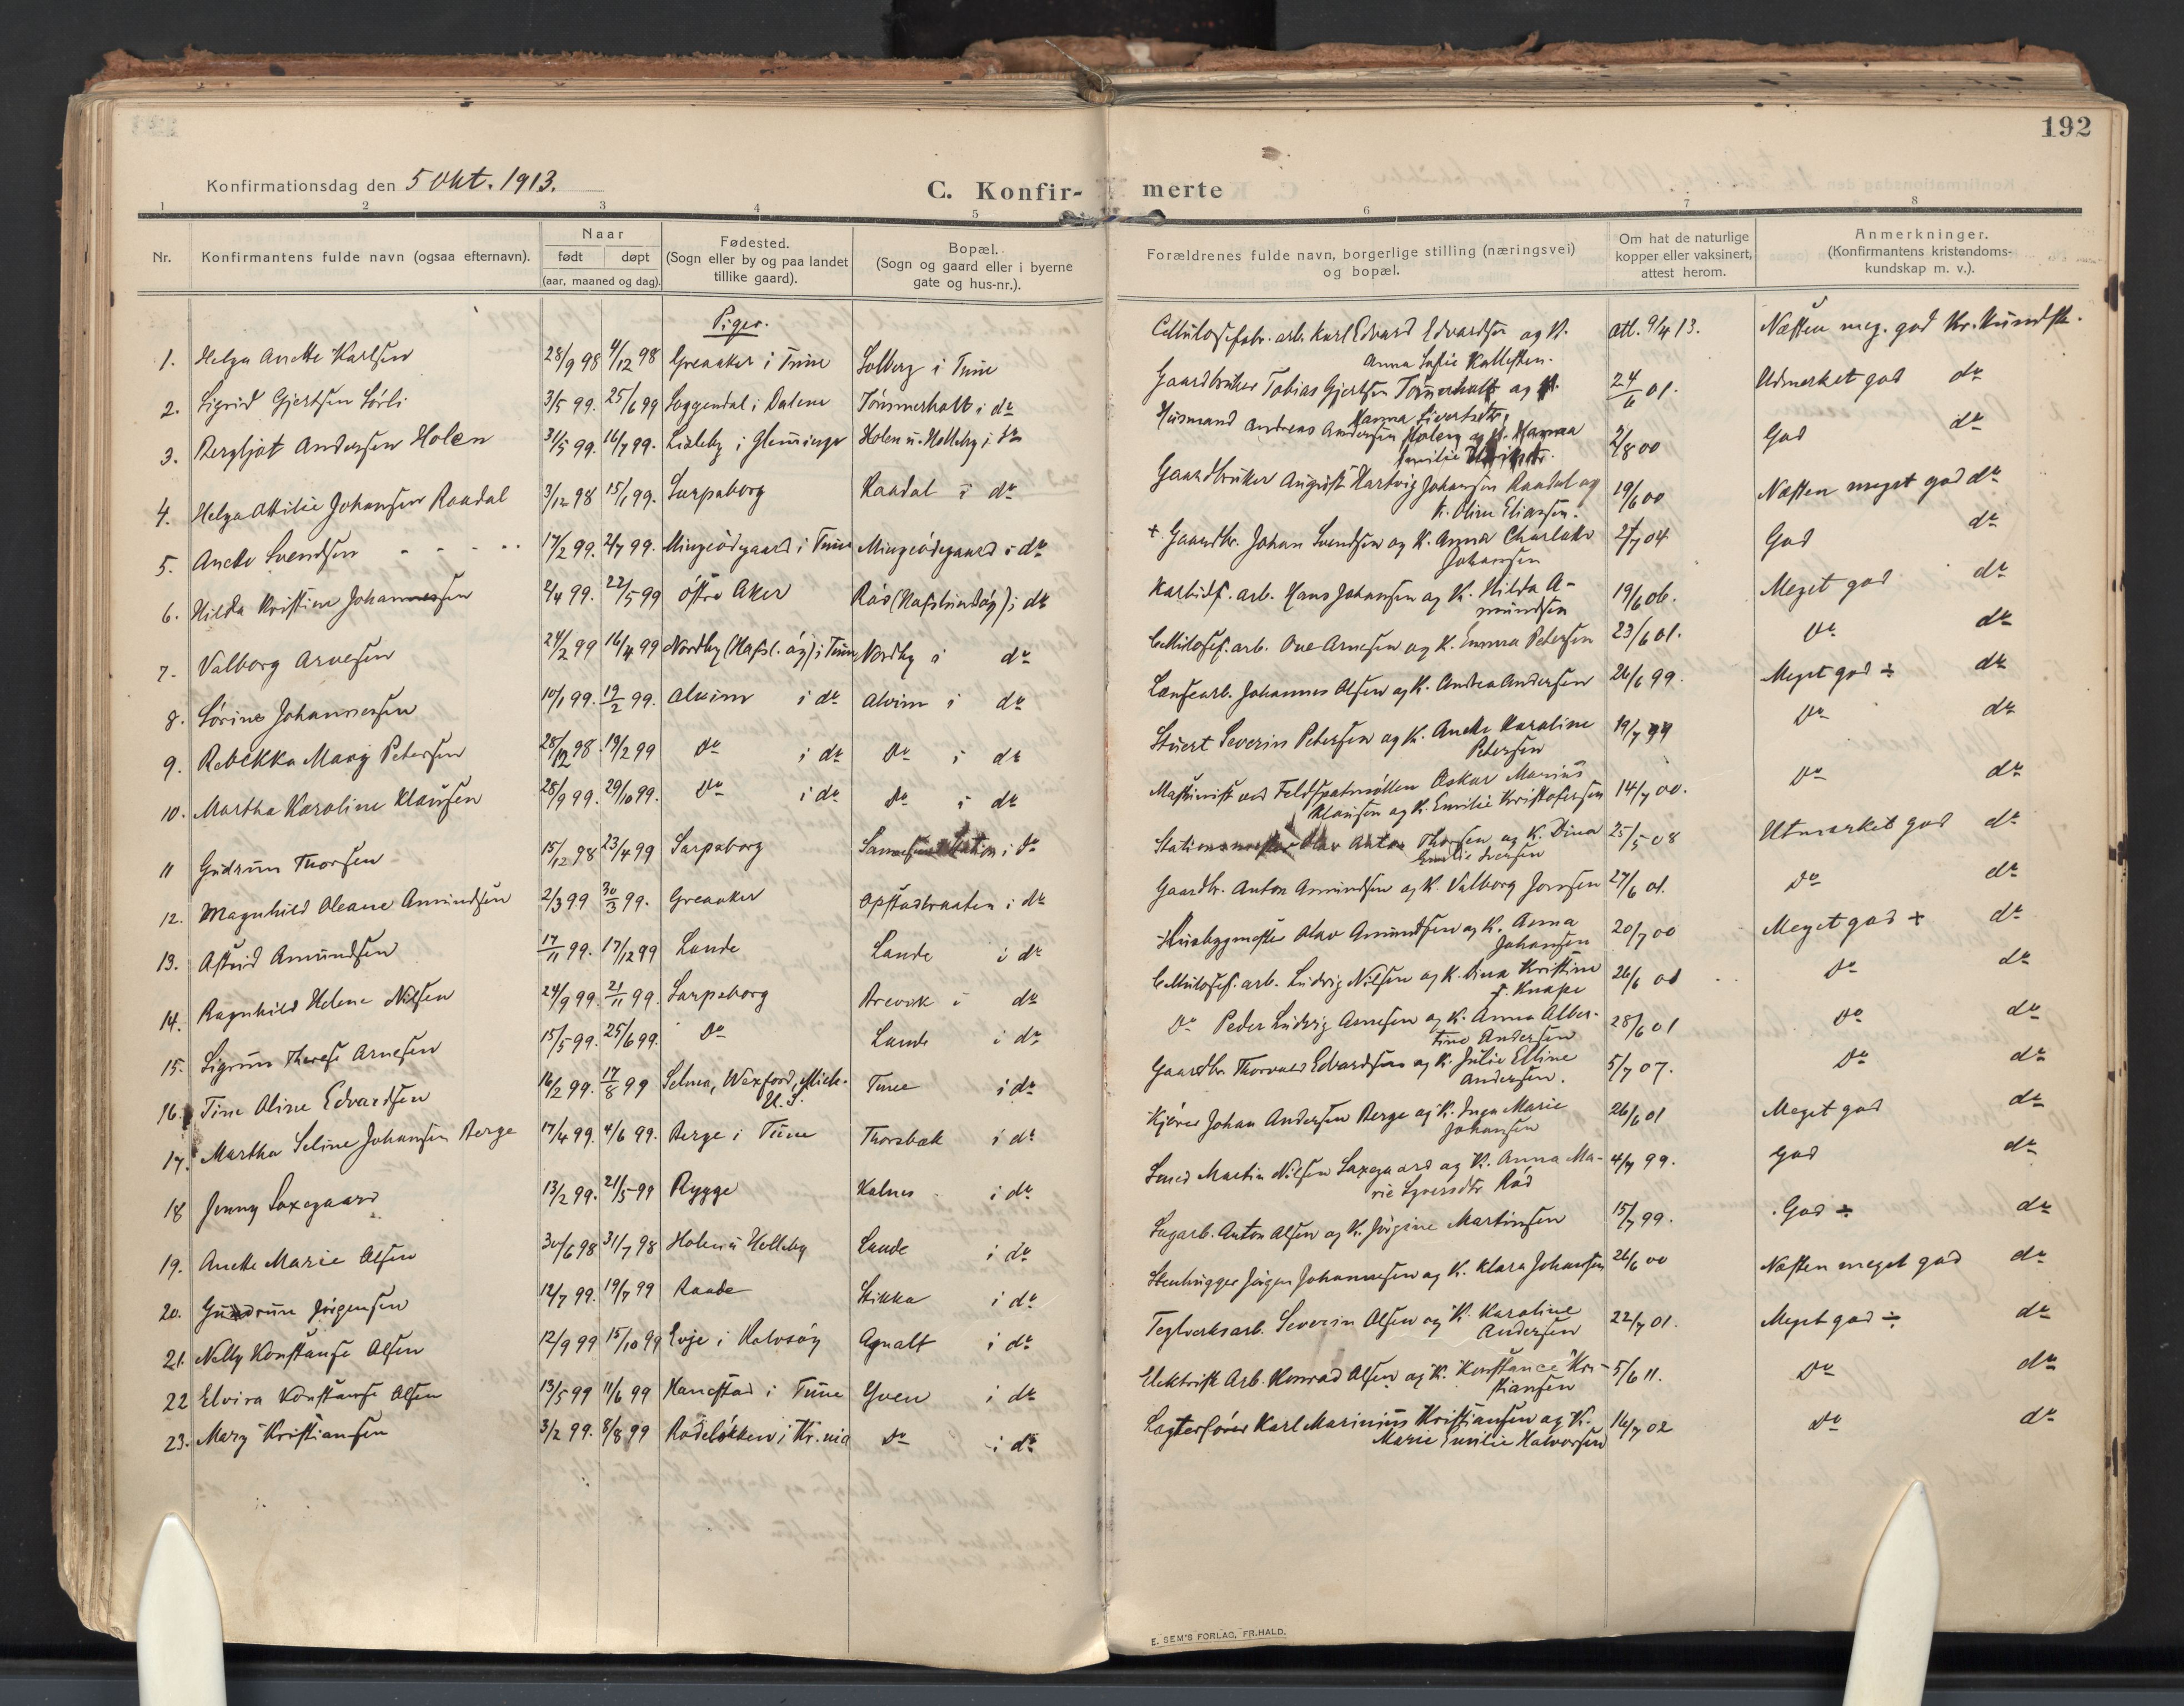 192
Konfirmationsdag den 5 Okt. 1913.
C. Konfir- merte
1 2 3 4 5 6 7 8
Nr.
Konfirmantens fulde navn (ogsaa efternavn).
Naar
født døpt
(aar, maaned og dag).
Fødested.
(Sogn eller by og paa landet
tillike gaard).
Bopæl.
(Sogn og gaard eller i byerne
gate og hus-nr.).
Forældrenes fulde navn, borgerlige stilling (næringsvei)
og bopæl.
Om hat de naturlige
kopper eller vaksinert,
attest herom.
Anmerkninger.
(Konfirmantens kristendoms-
kundskap m. v.).
Piger.
1. Helga Anette Karlsen 28/9 98 4/12 98 Greaaker i Tune Solberg i Tune Cellulosefabr. arb. Karl Edvard Edvardsen og K. att. 9/4 13. Næsten meg. god Kr. kundsk.
Anna Sofie Kallesten.
2. Sigrid Gjertsen Sørli 3/5 99. 25/6 99 Soggendal i Dalene Tømmerholt i do Gaardbruker Tobias Gjertsen Tømerholt og K. 24/6 01. Udmerket god do
Hanna Sivertsdtr.
3. Bergljot Andersen Holen 31/5 99. 16/7 99. Lisleby i Glemminge Holen u. Helleby i do Husmand Andreas Andersen Holen og K. Hanna 2/8 00 God do
Emilie
4. Helga Otilie Johansen Raadal 3/12 98 15/1 99. Sarpsborg Raadal i do Gaardbruker August Hartvig Johansen Raadal og 19/6 00 Næsten meget god do
K. Oline Eliassen.
5. Anette Svendsen 17/2 99. 2/7 99. Mingeødegaard i Tune Mingeødegaard i do + Gaardbr. Johan Svendsen og K. Anna Charlotte 2/7 04 God do
Johansen
6. Hilda Kristine Johannesen 2/4 99. 22/5 99 Østre Aker Rås (Hafslundsøy) i do Karbidf. arb. Hans Johansen og K. Hilda A- 19/6 06. Meget god do
mundsen
7. Valborg Arnesen 24/2 99 16/4 99 Nordby (Hafsl. øy) i Tune Nordby i do Cellulosef. arb. Ove Arnesen og K. Emma Petersen 23/6 01. Do do
8. Sørine Johannesen 10/1 99. 19/2 99. Alvim i do Alvim i do Lænsearb. Johannes Olsen og K. Andrea Andersen 26/6 99. Meget god ÷ do
9. Rebekka Mary Petersen 28/12 98. 19/2 99 Do i do Do i do Stuert Severin Petersen og K. Anette Karoline 19/7 99 Do do
Petersen
10. Martha Karoline Klausen 28/9 99. 29/10 99. Do i do Do i do Maskinist ved Feldspatmøllen Oskar Marius 14/7 00. Do do
Klausen og K. Emilie Kristofersen
11 Gudrun Thorsen 15/12 98 23/4 99 Sarpsborg Station i do Stationsmester Olav Anton Thorsen og K. Dina 25/5 08 Utmærket god do
Emilie Iversen
12. Magnhild Oleane Amundsen 2/3 99 30/3 99. Greaaker Opstadbraaten i do Gaardbr. Anton Amundsen og K. Valborg Jonsen 27/6 01. Do do
13. Astrid Amundsen 17/11 99. 17/12 99 Lande Lande i do Husbygmester Olav Amundsen og K. Anna 20/7 00 Meget god + do
Johansen
14. Ragnhild Helene Nilsen 24/9 99. 21/11 99. Sarpsborg Brevik i do Cellulosef. arb. Ludvig Nilsen og K. Lina Kristine 26/6 01 Do do
f. Knape
15. Sigrun Therese Arnesen 15/5 99. 25/6 99. Do Lande i do Do Peder Ludvig Arnesen og K. Anna Alber- 28/6 01 Do do
tine Andersen
16. Tine Oline Edvardsen 16/2 99. 17/8 99 Selma, Wexford, Mich. Tune i do Gaardbr. Thorvald Edvardsen og K. Julie Elline 5/7 07. Do do
U. S. Andersen.
17. Martha Seline Johansen Berge 17/4 99. 4/6 99. Berge i Tune Thorsbæk i do Kjører Johan Andersen Berge og K. Inga Marie 26/6 01 Meget god do
Johansen
18 Jenny Saxegaard 13/2 99. 21/5 99 Rygge Kalnes i do Smed Martin Nilsen Saxegaard og K. Anna Ma- 4/7 99. God do
rie Syversdtr. Rød
19. Anette Marie Olsen 30/6 98 31/7 98 Holen u Helleby Lande i do Sagarb. Anton Olsen og K. Jørgine Martinsen 15/7 99. God ÷ do
20. Gudrun Jørgensen 12/7 99. 19/7 99 Raade Stikka i do Stenhugger Jørgen Johannesen og K. Klara Johansen 26/6 00 Næsten meget god do
21. Nelly Konstanse Olsen 12/9 99 15/10 99 Evje i Kalvsøy Agnalt i do Teglverksarb. Severin Olsen og K. Karoline 22/7 01. Meget god ÷ do
Andersen
22 Elvira Konstanse Olsen 13/5 99 11/6 99 Hanestad i Tune Yven i do Elektrisk Arb. Konrad Olsen og K. Konstance Kri- 5/6 11. Do do
stiansen
23. Mary Kristiansen 3/2 99. 8/8 99 Rodeløkken i Kr.nia Do i do Lagterfører Karl Marinius Kristiansen og K. 16/7 02 Do do
Marie Emilie Halvorsen
E. SEM'S FORLAG, FR.HALD.